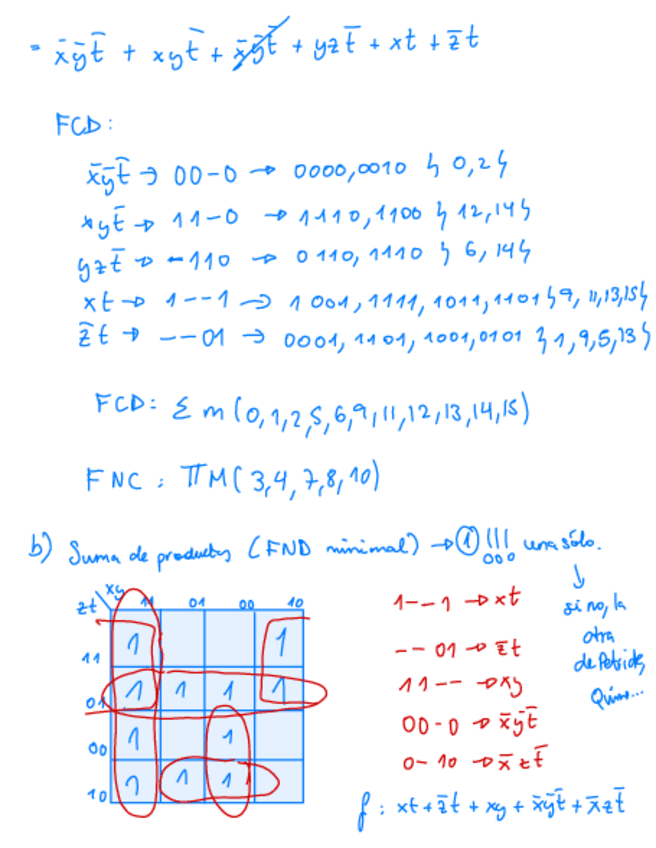 = x̄ȳt̄ + xyt̄ + x̄ȳt̄ + yzt̄ + xt + z̄t
FCD:
x̄ȳt̄ → 00-0 → 0000,0010 } 0,2 }
xyt̄ → 11-0 → 1110,1100 } 12,14 }
yzt̄ → -110 → 0110,1110 } 6,14 }
xt → 1--1 → 1001,1111,1011,1101 } 9,11,13,15 }
z̄t → --01 → 0001,1101,1001,0101 } 1,9,5,13 }
FCD: Σ m (0,1,2,5,6,9,11,12,13,14,15)
FNC: ΠM (3,4,7,8,10)
b) Suma de productos (FND minimal) → ① !!! una sólo.
↓
si no, la
otra
de Petrick,
Quine...
xy
zt 11 01 00 10
11 1 1
01 1 1 1 1
00 1 1
10 1 1 1
1--1 → xt
--01 → z̄t
11-- → xy
00-0 → x̄ȳt̄
0-10 → x̄zt̄
f: xt + z̄t + xy + x̄ȳt̄ + x̄zt̄